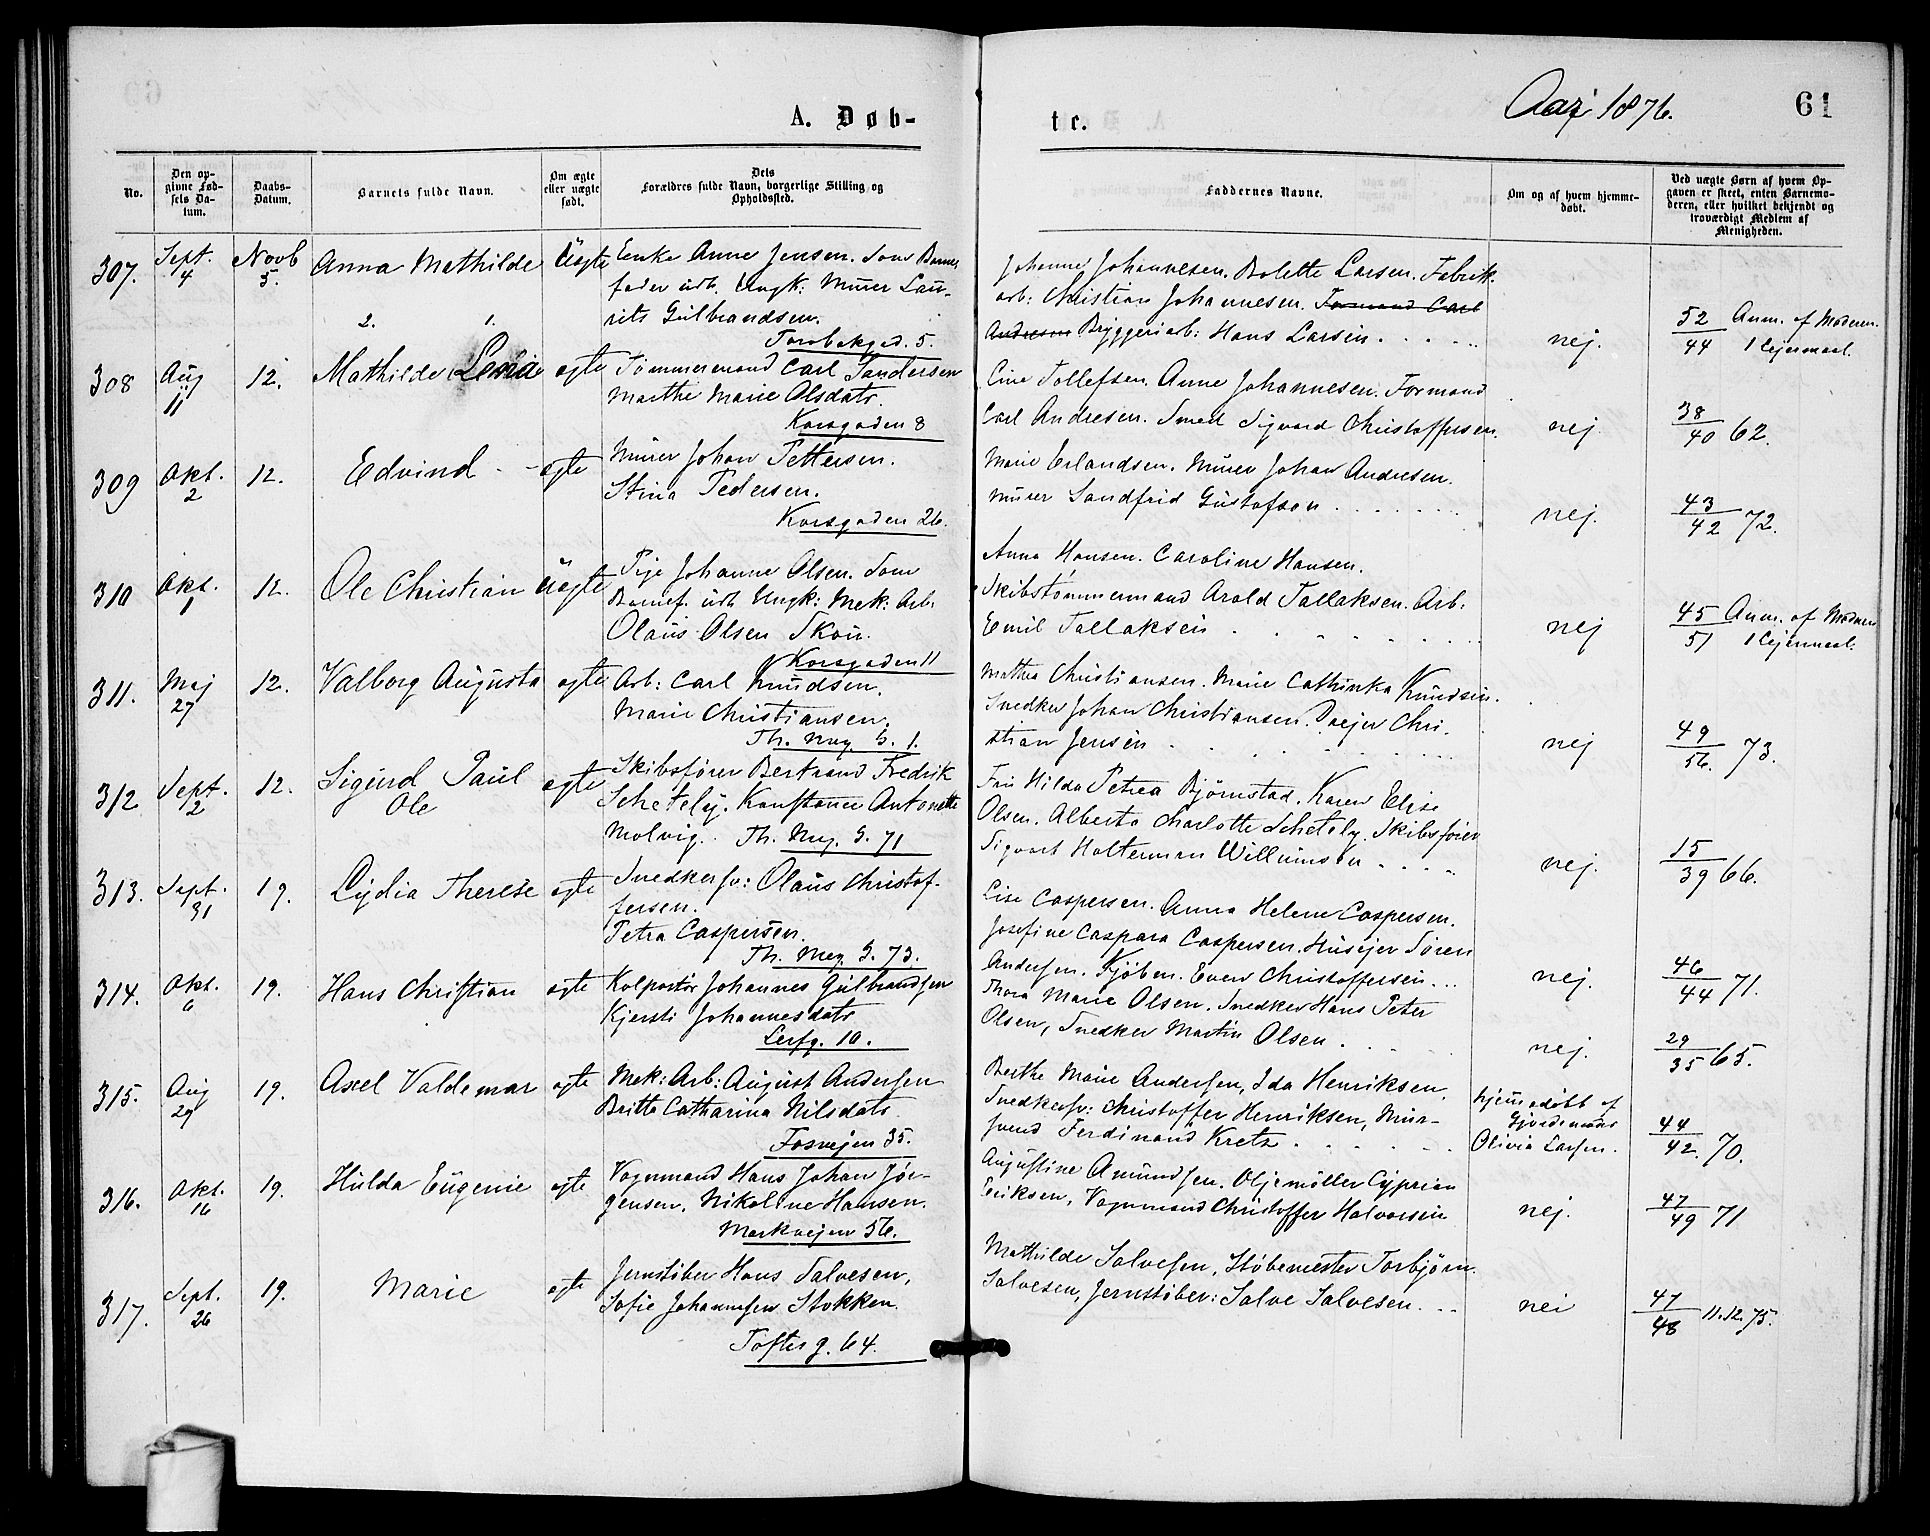 A. Døb-
te.
Aar 1876.
61
No.
Den op-
givne Fød-
sels Da-
tum.
Daabs-
Datum.
Barnets fulde Navn.
Om ægte
eller uægte
født.
Dets
Forældres fulde Navn, borgerlige Stilling og
Opholdssted.
Faddernes Navne.
Om og af hvem hjemme-
døbt.
Ved uægte Børn af hvem Op-
gaven er skeet, enten Barnemo-
deren, eller hvilket bekjendt og
troværdigt Medlem af
Menigheden.
307. Sept. 4 Novb 5. Anna Mathilde Uægte Enke Anne Jensen. Som Barne
fader udl. Ungk: Murer Lau-
rits Gulbrandsen.
Torvbakgd. 5.
Johanne Johannesen. Bolette Larsen. Fabrik.
arb: Christian Johannesen. Formand Carl
Andresen Bryggeriarb: Hans Larsen
nej.
52/44 Anm. af Moderen.
1 Lejermaal.
2. 1.
308 Aug 11 12. Mathilde Lena ægte Tømmermand Carl Sandersen
Marthe Marie Olsdatr.
Korsgaden 8
Line Tollefsen. Anne Johannesen. Formand
Carl Andresen. Smed Sigvard Christoffersen.
nej
38/40 62.
309 Okt. 2 12. Edvind ægte Murer Johan Pettersen.
Stina Pedersen.
Korsgaden 26.
Marie Erlandsen. Murer Johan Andresen.
Murer Sandfrid Gustafson
nej.
43/42 72.
310 Okt. 1 12. Ole Christian Uægte Pige Johanne Olsen. Som
Barnef. udl. Ungk: Mek: Arb.
Olaus Olsen Skou.
Korsgaden 11
Anna Hansen. Caroline Hansen.
Skibstømmermand Arold Tallaksen. Arb:
Emil Tallaksen
nej
45/51 Anm. af Moderen
1 Lejermaal.
311. Maj 27 12. Valborg Augusta ægte Arb: Carl Knudsen.
Marie Christiansen.
Th. Mey. G. 1.
Mathea Christiansen. Marie Cathinka Knudsen.
Snedker Johan Christiansen. Plejer Chri-
stian Jensen
nej
49/56. 73.
312 Sept. 2 12. Sigurd Paul
Ole ægte Skibsfører Bertrand Fredrik
Schetely. Konstance Antonette
Molvig. Th. Mey. G. 71
Fru Hilda Petrea Bjørnstad. Karen Elise
Olsen. Alberta Charlotte Schetely. Skibsfører
Sigvart Holterman Willumsen
nej.
15/39 66.
313. Sept. 31 19. Lydia Therese ægte Snedkersv: Olaus Christof-
fersen.
Petra Caspersen.
Th. Mey. G. 73.
Lise Caspersen. Anna Helene Caspersen.
Josefine Caspara Caspersen. Husejer Søren
Andersen. Kjøbm. Even Christoffersen
nej.
46/44 71.
314. Okt. 6 19. Hans Christian ægte Kolportør Johannes Gulbrandsen
Kjersti Johannesdatr
Leirfg. 10.
Thora Marie Olsen. Snedker Hans Peter
Olsen, Snedker Martin Olsen
nej.
29/35 65.
315. Aug 29 19. Axel Valdemar ægte Mek: Arb: August Andersen
Britta Catharina Nilsdatr.
Fosvejen 35.
Berthe Marie Andersen, Ida Henriksen,
Snedkersv: Christoffer Henriksen, Mur-
svend Ferdinand Kretz
hjemmedøbt af
Gjordemoder
Olivia Larsen.
44/42. 70.
316. Okt. 16 19. Hulda Eugenie ægte Vognmand Hans Johan Jør-
gensen, Nikoline Hansen.
Markvejen 56.
Augustine Amundsen. Oljemøller Cyprian
Eriksen, Vognmand Christoffer Halvorsen
nej.
47/49 71
317. Sept. 26 19. Marie ægte Jernstøber Hans Salvesen,
Sofie Johannesen Stokken.
Toftes g. 64.
Mathilde Salvesen, Støbemester Torbjørn
Salvesen, Jernstøber: Salve Salvesen
nei
47/48 11.12.75.